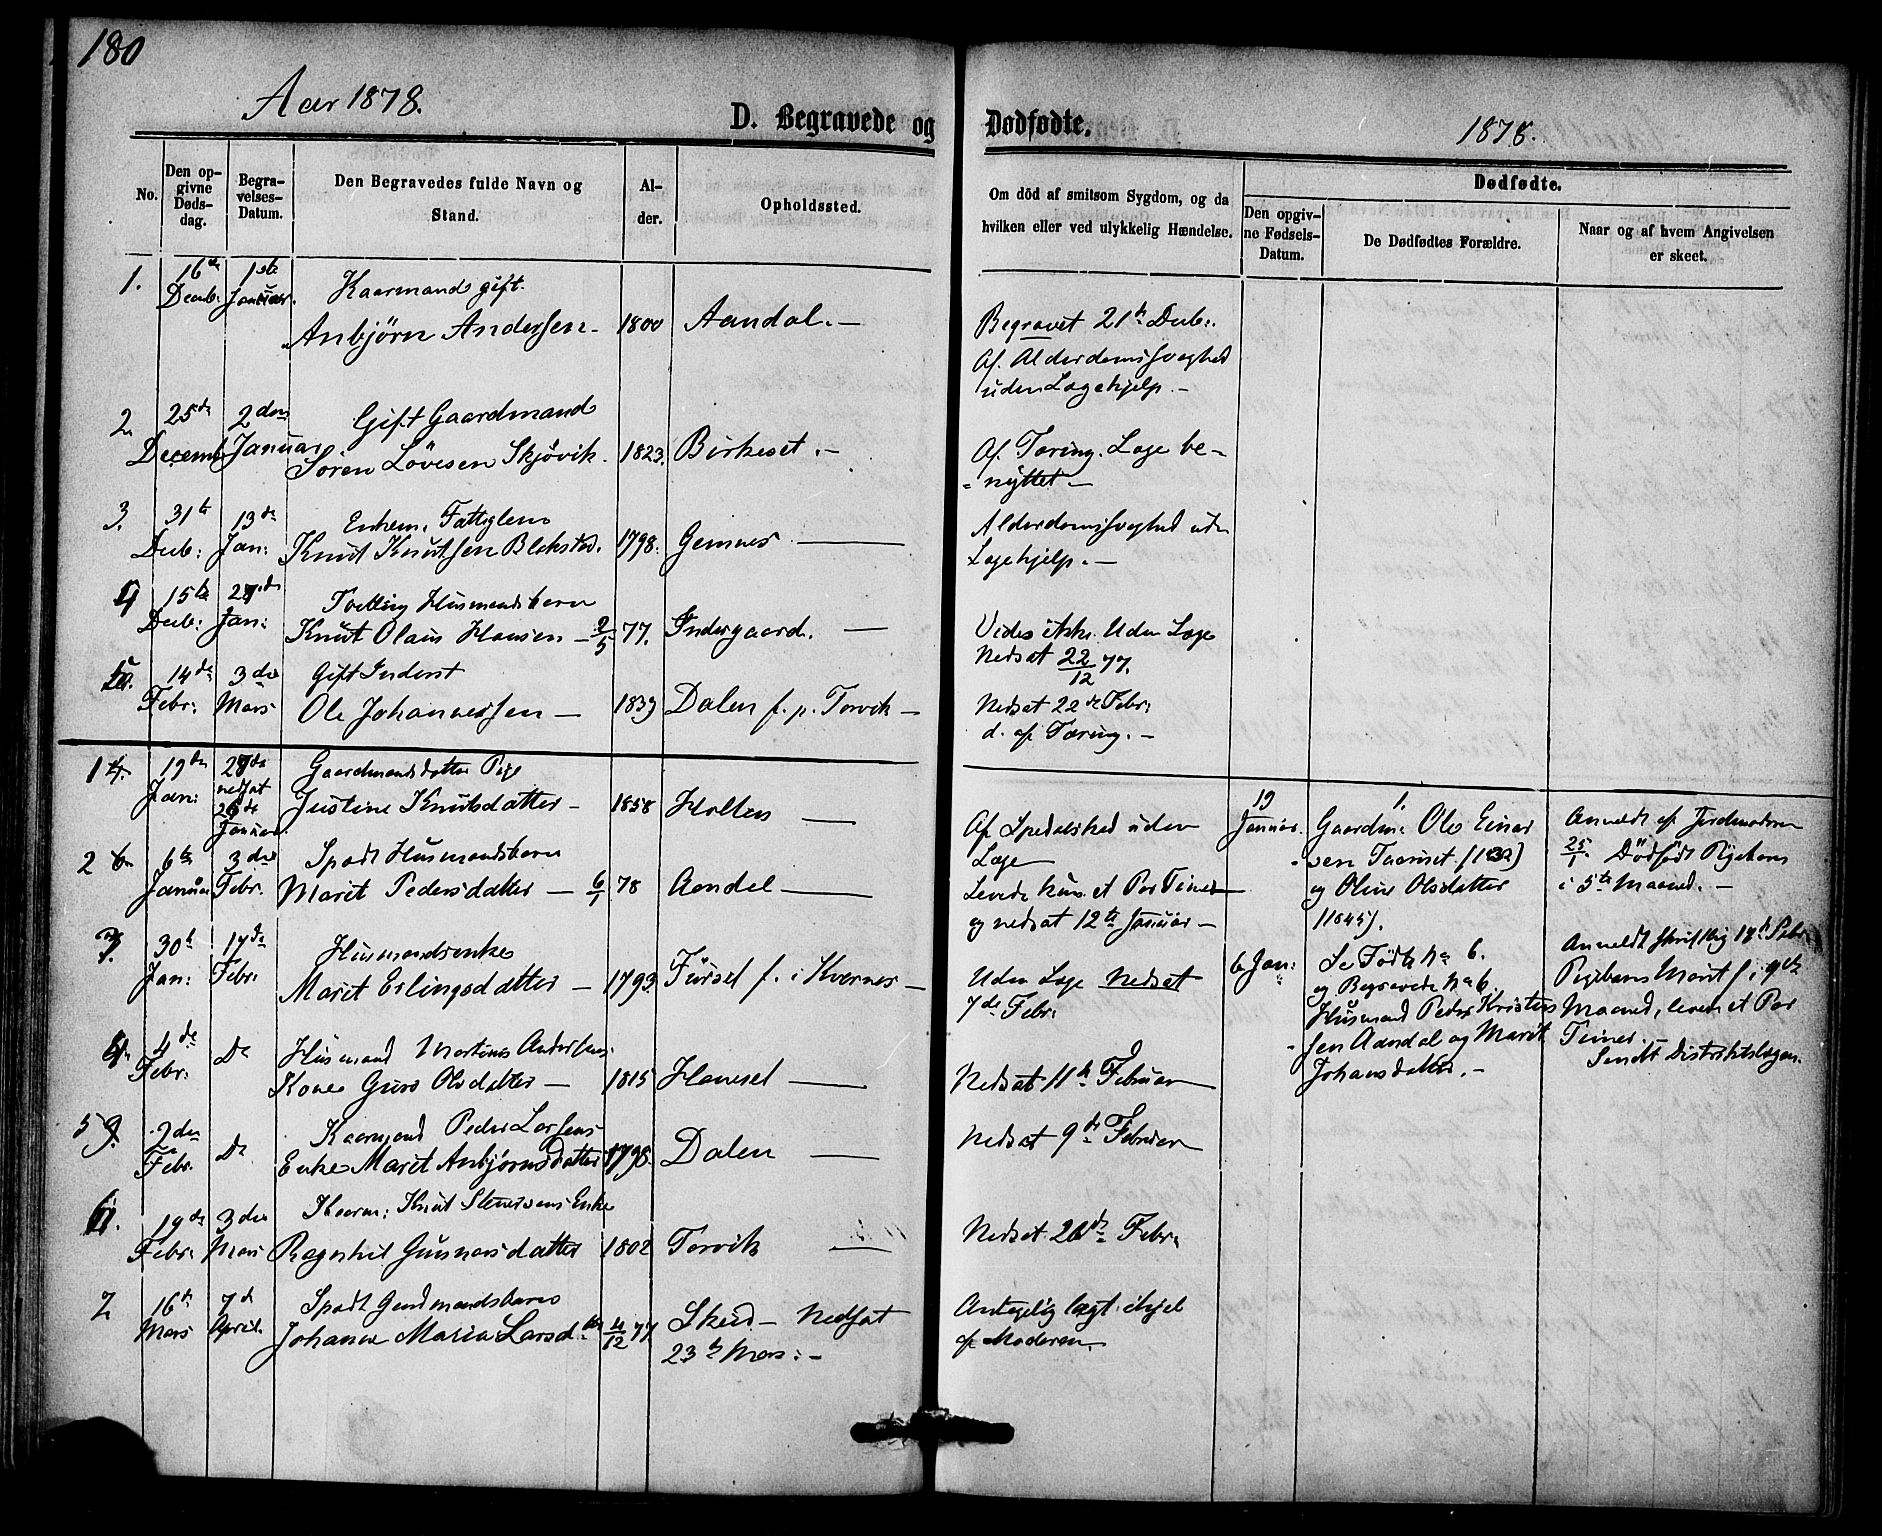 180
Aar 1878.
D. Begravede og Dødfødte.
1878.
No.
Den op-
givne
Døds-
dag.
Begra-
velses-
Datum.
Den Begravedes fulde Navn og
Stand.
Al-
der.
Opholdssted.
Om död af smitsom Sygdom, og da
hvilken eller ved ulykkelig Hændelse.
Dødfødte.
Den opgiv-
ne Fødsels-
Datum.
De Dødfødtes Forældre.
Naar og af hvem Angivelsen
er skeet.
1.
16de
Decb:
1ste
Januar.
Kaarmand gift.
Anbjörn Andersen - 1800 Aandal. -
Begravet 21de Decb:
Af Alderdomssvaghed
uden Lægehjelp. -
2
25de
Decemb
2den
Januar
Gift Gaardmand
Sören Lövesen Skjövik. 1823. Birkeset. -
Af Tæring. Læge be-
nyttet -
3.
31te
Decb:
13de
Jan:
Enkem. Fattiglem
Knut Knutsen Blekstad. 1798. Gemnes -
Alderdomssvaghed uden
Lægehjelp. -
4
15de
Decb:
27de
Jan:
Tvilling Husmandsbarn
Knut Olaus Hansen - 2/5 77. Indergaard. -
Vides ikke. Uden Læge
Nedsat 22/12 77.
5.
14de
Febr:
3die
Mars
Gift Inderst
Ole Johannessen - 1839 Dalen f. p. Torvik -
Nedsat 22de Febr:
d. af Tæring. -
1
19de
Jan:
27de
nedsat
26de
Januar.
Gaardmandsdatter Pige
Justine Knutsdatter - 1858 Holten -
Af Spedalskhed uden
Læge
19
Januar.
1.
Gaardm: Ole Einar
sen Taarset (1832)
og Oline Olsdatter
(1845).
Anmeldt af Jordemoderen
25/1. Dödfödt Pigebarn
i 5te Maaned. -
2
6te
Januar
3die
Febr.
Spædt Husmandsbarn
Marit Pedersdatter - 6/1 78 Aandal -
Levede kun et Par Timer
og nedsat 12te Januar -
3.
30te
Jan:
17de
Febr:
Husmandsenke
Marit Erlingsdatter - 1793 Fursel f. i Kvernes -
Uden Læge Nedsat
7de Febr:
6 Jan:
Se Födte No 6.
og Begravede No 6.
Husmand Peder Kristen
sen Aandal og Marit
Johansdatter. -
Anmeldt skriftlig 17de Febr:
Pigebarn Marit f. i 9de
Maaned, levede et Par
Timer.
Sendt Distriktslægen.
4.
4de
Febr:
Do
Husmand Martinus Andersens
Kone Guro Olsdatter - 1815 Hanset -
Nedsat 11te Februar
5
2den
Febr.
Do
Kaarmand Peder Larsens
Enke Marit Anbjörnsdatter 1798. Dalen -
Nedsat 9de Februar
6.
19de
Febr:
3die
Mars
Kaarm: Knut Stenersens Enke
Ragnhil Gunnarsdatter 1802 Torvik -
Nedsat 26de Febr:
7
16de
Mars
7de
April.
Spædt Gaardmandsbarn
Johanne Maria Larsd. 4/12 77. Skeid - Nedsat
23de Mars: -
Antagelig lagt ihjel
af Moderen.